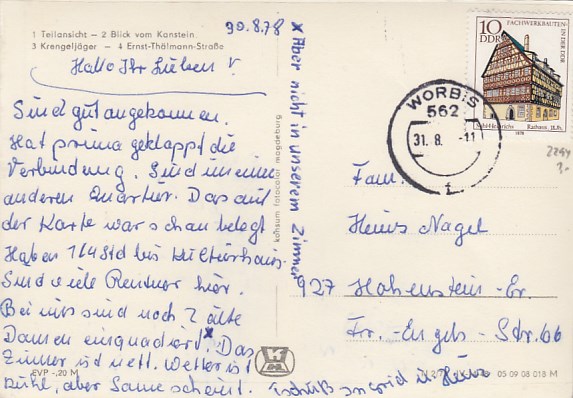 1 Teilansicht — 2 Blick vom Kanstein
3 Krengeljäger — 4 Ernst-Thälmann-Straße
30.8.78
Hallo Ihr Lieben!
Sind gut angekommen.
Hat prima geklappt die
Verbindung. Sind in einem
anderen Quartier. Das auf
der Karte war schon belegt
Haben 1/4 Std bis Kulturhaus.
Sind viele Rentner hier.
Bei uns sind noch 2 alte
Damen einquadiert.* Das
Zimmer ist nett. Wetter ist
kühl, aber Sonne scheint. Tschüß Ingrid u. Heinz
* Aber nicht in unserem Zimmer
EVP -,20 M
konsum fotocolor magdeburg
10
DDR
FACHWERKBAUTEN
IN DER DDR
Rathaus, 16. Jh.
1978
WORBIS
562
31. 8. -11
Fam.
Heinz Nagel
927 Hohenstein-Er.
Fr.-Engels-Str. 66
05 09 08 018 M